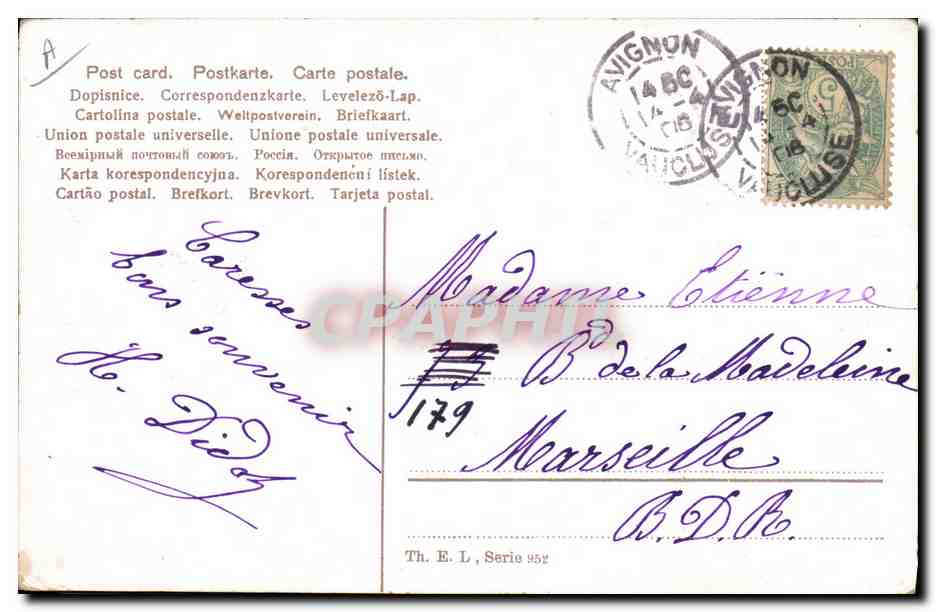 A
Post card. Postkarte. Carte postale.
Dopisnice. Correspondenzkarte. Levelező-Lap.
Cartolina postale. Weltpostverein. Briefkaart.
Union postale universelle. Unione postale universale.
Всемірный почтовый союзъ. Россія. Открытое письмо.
Karta korespondencyjna. Korespondenční lístek.
Cartão postal. Brefkort. Brevkort. Tarjeta postal.
AVIGNON
14 -4
06
VAUCLUSE
AVIGNON
VAUCLUSE
5
POSTES
Caresses
bons souvenir
H. Didot
CPAPHIL
Madame Etiënne
179
Bd de la Madeleine
Marseille
B. D. R.
Th. E. L, Serie 952